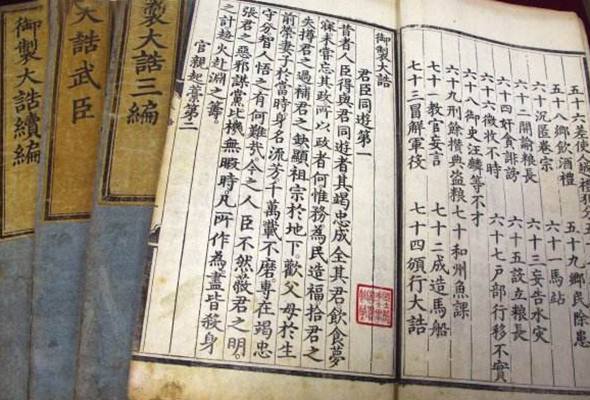 五十六差使人越禮犯分
五十八鄉飲酒禮 五十九鄉民除患
六十沉匿卷宗 六十一馬站
六十二閒諭糧長 六十三妄告水災
六十四奸貪誹謗 六十五設立糧長
六十六徵收不時 六十七戶部行移不實
六十八御史汪麟等不才
六十九刑餘攢典盜糧 七十和州魚課
七十一教官妄言 七十二成造馬船
七十三冒解軍役 七十四頒行大誥
御製大誥
君臣同遊第一
昔者人臣得與君同遊者其竭忠成全其君飲食夢
寐未嘗忘其政所以政者何惟務為民造福拾君之
失撙君之過補君之缺顯祖宗於地下歡父母於生
前榮妻子於當時身名流芳千萬載不磨專在竭忠
守分智人悟之有何難哉今之人臣不然蔽君之明
張君之惡邪謀黨比機無暇時凡所作為盡皆殺身
之計趨火赴淵之籌
官親起稾第二
製大誥三編
大誥武臣
御製大誥續編